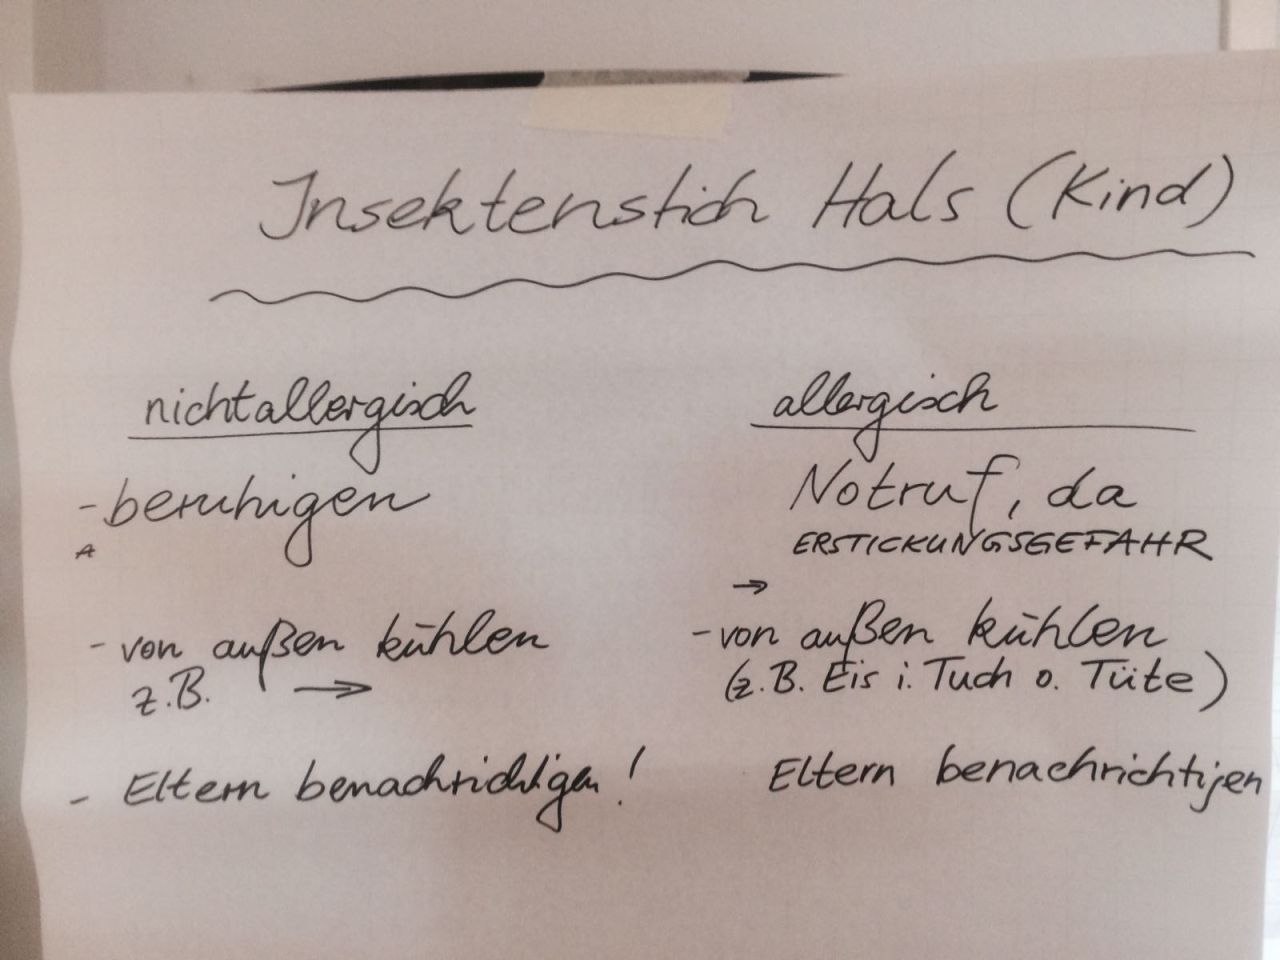 Insektenstich Hals (Kind)
nichtallergisch
- beruhigen
- von außen kühlen
z.B. →
- Eltern benachrichtigen!
allergisch
Notruf, da
ERSTICKUNGSGEFAHR
→
- von außen kühlen
(z.B. Eis i. Tuch o. Tüte)
Eltern benachrichtigen